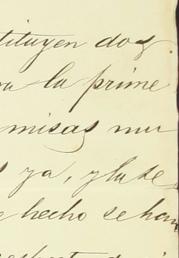 tituyen dos
la prime
misas mu
ya, y la de
hecho se han